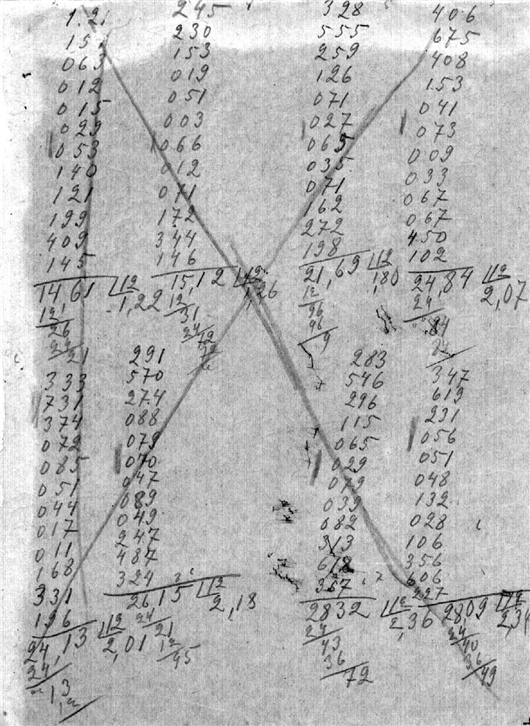 1.21
15
063
012
015
029
053
140
121
199
409
145
14,61 | 12
1,22
12
26
24
21
245
230
153
019
051
003
066
012
011
172
344
146
15,12 | 12
1,26
12
31
24
72
72
328
555
259
126
071
027
065
035
071
162
272
198
21,69 | 12
1,80
12
96
96
9
406
675
408
153
041
073
009
033
067
067
450
102
24,84 | 12
2,07
24
84
333
731
374
072
085
051
044
017
011
168
331
196
24,13 | 12
2,01
24
13
12
291
570
274
088
079
070
047
089
049
247
487
324
26,15 | 12
2,18
24
21
12
95
283
546
296
115
065
029
079
039
082
313
618
367
2832 | 12
2,36
24
43
36
72
347
613
231
056
051
048
132
028
106
356
606
227
2809 | 12
2,34
24
40
36
49